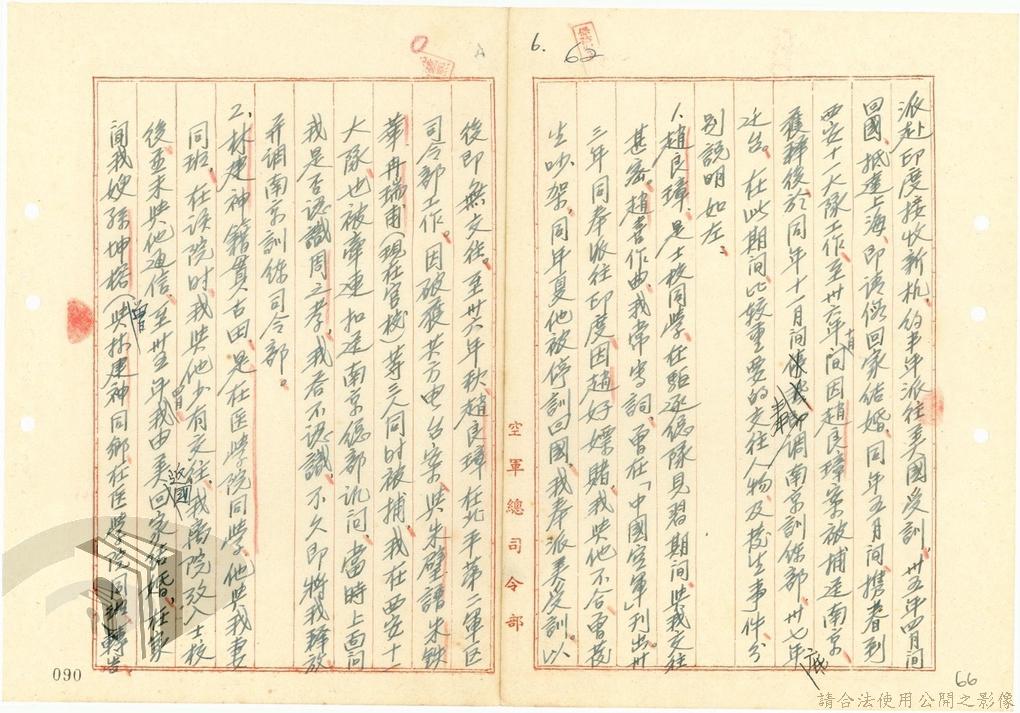 6.
62
派赴印度接收新机,約半年派往美國受訓,卅五年四月間
回國,抵達上海,即請假回家結婚,同年五月間,携眷到
西安十一大隊工作,至卅六年間因趙良璋案被捕送南京
獲釋後於同年十一月間調南京訓练部,卅七年底
迁台。在此期間,比較重要的交往人物,及發生事件分
別說明如左:
1、趙良璋,是士校同學,在驅逐總隊見習期間,與我交往
甚密,趙喜作曲,我常写詞,曾在「中國空軍」刊出,卅
三年同奉派往印度,因趙好嫖賭,我與他不合,曾發
生吵架,同年夏他被停訓回國,我奉派美受訓,以
後即無交往。至卅六年秋,趙良璋在北平第二軍区
司令部工作。因破獲共方电台案,與朱建國朱鉄
華丹瑞甫(現在官校)等三人同時被捕,我在西安十一
大隊,也被牽連扣送南京總部訊问,當時上面问
我是否認識周之孝,我答不認識,不久即将我釋放
并调南京訓练司令部。
2、林建神,籍貫古田,是在医學院同學,他與我妻
同班,在該院时,我與他少有交往,我离院攷入士校
後並未與他通信,至卅五年我由美返國回家結婚,在家
間我嫂孫坤榕(曾與林建神同鄉,在医學院同班)轉告
空軍總司令部
090
66
請合法使用公開之影像